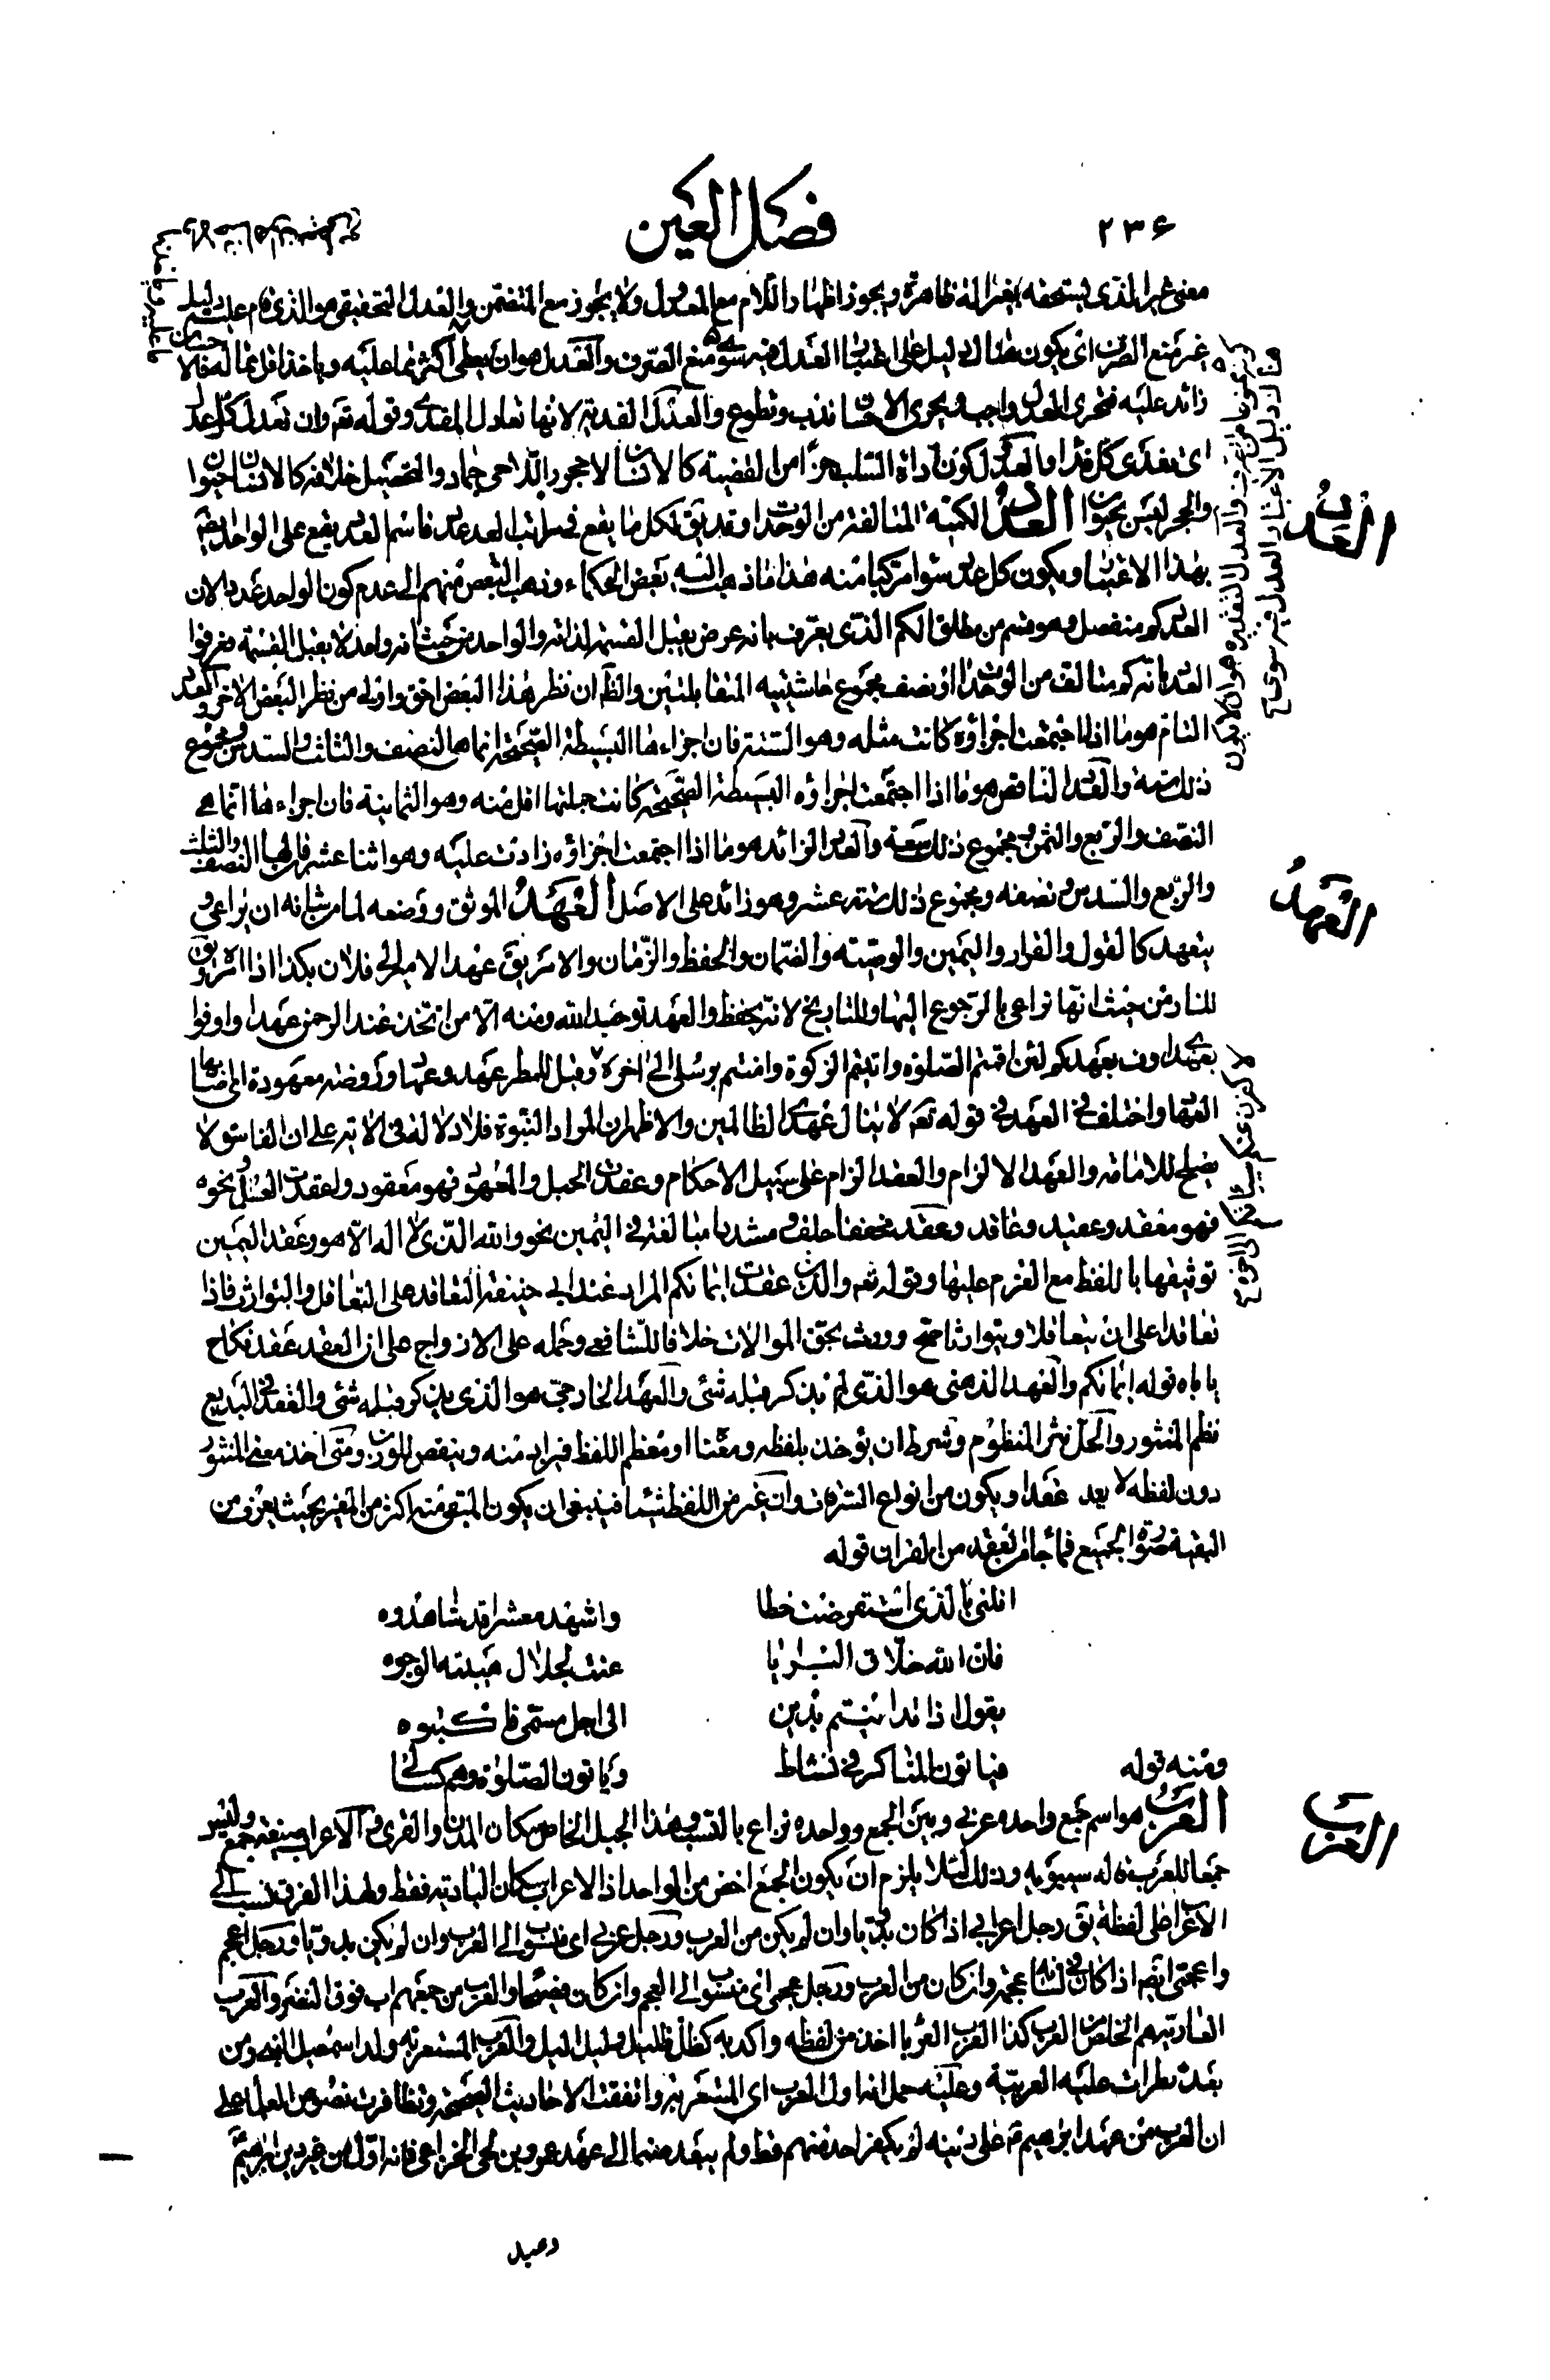 ٢٣۶
فصل العين
معنى غير الذى يستحقه بغير آلة ظاهرة ويجوز اظهار اللام مع المعدول ولا يجوز مع المتضمن والعدل التحقيقى هو الذى قام عليه دليل
غير منع الصرف اى يكون هناك دليل على اعتبار العدل فيه سوى منع الصرف والعدل هو ان يعطى اكثر مما عليه وياخذ اقل مما له فالاحسان
زائد عليه فتحرى العدل واجب وتحرى الاحسان ندب وتطوع والعدل الفدية لانها تعادل المفدى وقوله تعه وان تعدل كل عدل
اى تفدى كل فداء والعدل كون اداة السلب جزءا من القضية كالانسان لا حجر واللاحى جماد والتحصيل خلافه كالانسان حيوان
والحجر ليس بحيوان العدد الكمية المتالفة من الوحدات وقد يق لكل ما يقع فى مراتب العد عدد فاسم العدد يقع على الواحد ايضا
بهذا الاعتبار ويكون كل عدد سواه مركبا منه هذا ما ذهب اليه بعض الحكماء وذهب البعض منهم الى عدم كون الواحد عددا لان
العدد كم منفصل وهو قسم من مطلق الكم الذى يعرف بانه عرض يقبل القسمة لذاته والواحد من حيث انه واحد لا يقبل القسمة فعرفوا
العدد بانه كم متالف من الوحدات او نصف مجموع حاشيتيه المتقابلتين والظ ان نظر هذا البعض احق واولى من نظر البعض الاخر والعدد
التام هو ما اذا اجتمعت اجزاؤه كانت مثله وهو الستة فان اجزاءها البسيطة الصحيحة انما هى النصف والثلث والسدس ومجموع
ذلك ستة والعدد الناقص هو ما اذا اجتمعت اجزاؤه البسيطة الصحيحة كانت جملتها اقل منه وهو الثمانية فان اجزاءها انما هى
النصف والربع والثمن ومجموع ذلك سبعة والعدد الزائد هو ما اذا اجتمعت اجزاؤه زادت عليه وهو اثنا عشر فان لها النصف والثلث
والربع والسدس ونصفه ومجموع ذلك ستة عشر وهو زائد على الاصل العهد الموثق ووضعه لما من شانه ان يراعى و
يتعهد كالقول والقرار واليمين والوصية والضمان والحفظ والزمان والامر يق عهد الامير الى فلان بكذا اذا امره ويق
للدار من حيث انها تراعى بالرجوع اليها وللتاريخ لانه يحفظ والعهد توحيد الله ومنه الا من اتخذ عند الرحمن عهدا واوفوا
بعهدى اوف بعهدكم لئن اقمتم الصلوة واتيتم الزكوة وامنتم برسلى الى اخره وقيل للمطر عهد وعهاد وروضة معهودة اى اصابها
العهاد واختلف فى العهد فى قوله تعه لا ينال عهدى الظالمين والاظهر ان المراد النبوة فلا دلالة فى الاية على ان الفاسق لا
يصلح للامامة والعهد الالزام والعقد الزام على سبيل الاحكام وعقدت الحبل والعهد فهو معقود واعقدت العسل ونحوه
فهو معقد وعقيد وعاقد وعقد مخففا حلف ومشددا مبالغة فى اليمين نحو والله الذى لا اله الا هو وعقد اليمين
توثيقها باللفظ مع العزم عليها وقوله تعه والذين عقدت ايمانكم المراد عند ابى حنيفة التعاقد على التعاقل والتوارث فاذا
تعاقدا على ان يتعاقلا ويتوارثا صح وورث بحق الموالاة خلافا للشافعى وحمله على الازواج على ان العقد عقد نكاح
ياباه قوله ايمانكم والعهد الذهنى هو الذى لم يذكر قبله شئ والعهد الخارجى هو الذى يذكر قبله شئ والعقد فى البديع
نظم المنثور والحل نثر المنظوم وشرط ان يؤخذ بلفظه ومعناه او معظم اللفظ فيزاد منه وينقص للوزن ومتى اخذ معنى المنثور
دون لفظه لا يعد عقدا ويكون من انواع السرقات وان غير من اللفظ شيئا فينبغى ان يكون المتبقى منه اكثر من المغير بحيث يعرف من
البقية صورة الجميع فما جاء من العقد من القران قوله
انلنى بالذى استقرضت خطا واشهد معشرا قد شاهدوه
فان الله خلاق البرايا عنت لجلال هيبته الوجوه
يقول اذا تداينتم بدين الى اجل مسمى فاكتبوه
ومنه قوله فياتون المناكر فى نشاط وياتون الصلوة وهم كسالى
العرب هو اسم جمع واحده عربى وبين الجمع وواحده نزاع بالنسب وهذا الجيل الخاص سكان المدن والقرى والاعراب صيغة جمع وليس
جمعا للعرب قاله سيبويه وذلك لئلا يلزم ان يكون الجمع اخص من الواحد اذ الاعراب سكان البادية فقط ولهذا الفرق نسب الى
الاعراب على لفظه يق رجل اعرابى اذا كان بدويا وان لم يكن من العرب ورجل عربى اى منسوب الى العرب وان لم يكن بدويا ورجل اعجم
واعجمى ايضه اذا كان فى لسانه عجمة وان كان من العرب ورجل عجمى اى منسوب الى العجم وان كان فصيحا والعرب من جمعهم اب فوق النضر والعرب
العاربة هم الخلص من العرب كذا العرب العرباء اخذ من لفظه واكد به كظل ظليل وليل اليل والعرب المستعربة ولد اسمعيل النبى ومن
بعده طرات عليه العربية وعليه حمل انه اول العرب اى المستعربة واتفقت الاحاديث الصحيحة وتظافرت نصوص العلماء على
ان العرب من عهد ابرهيم ع على دينه لم يكفر احد منهم قط ولم يعبد صنما الى عهد عمرو بن لحى الخزاعى فانه اول من غير دين ابرهيم
العدد
العهد
العرب
وعبد